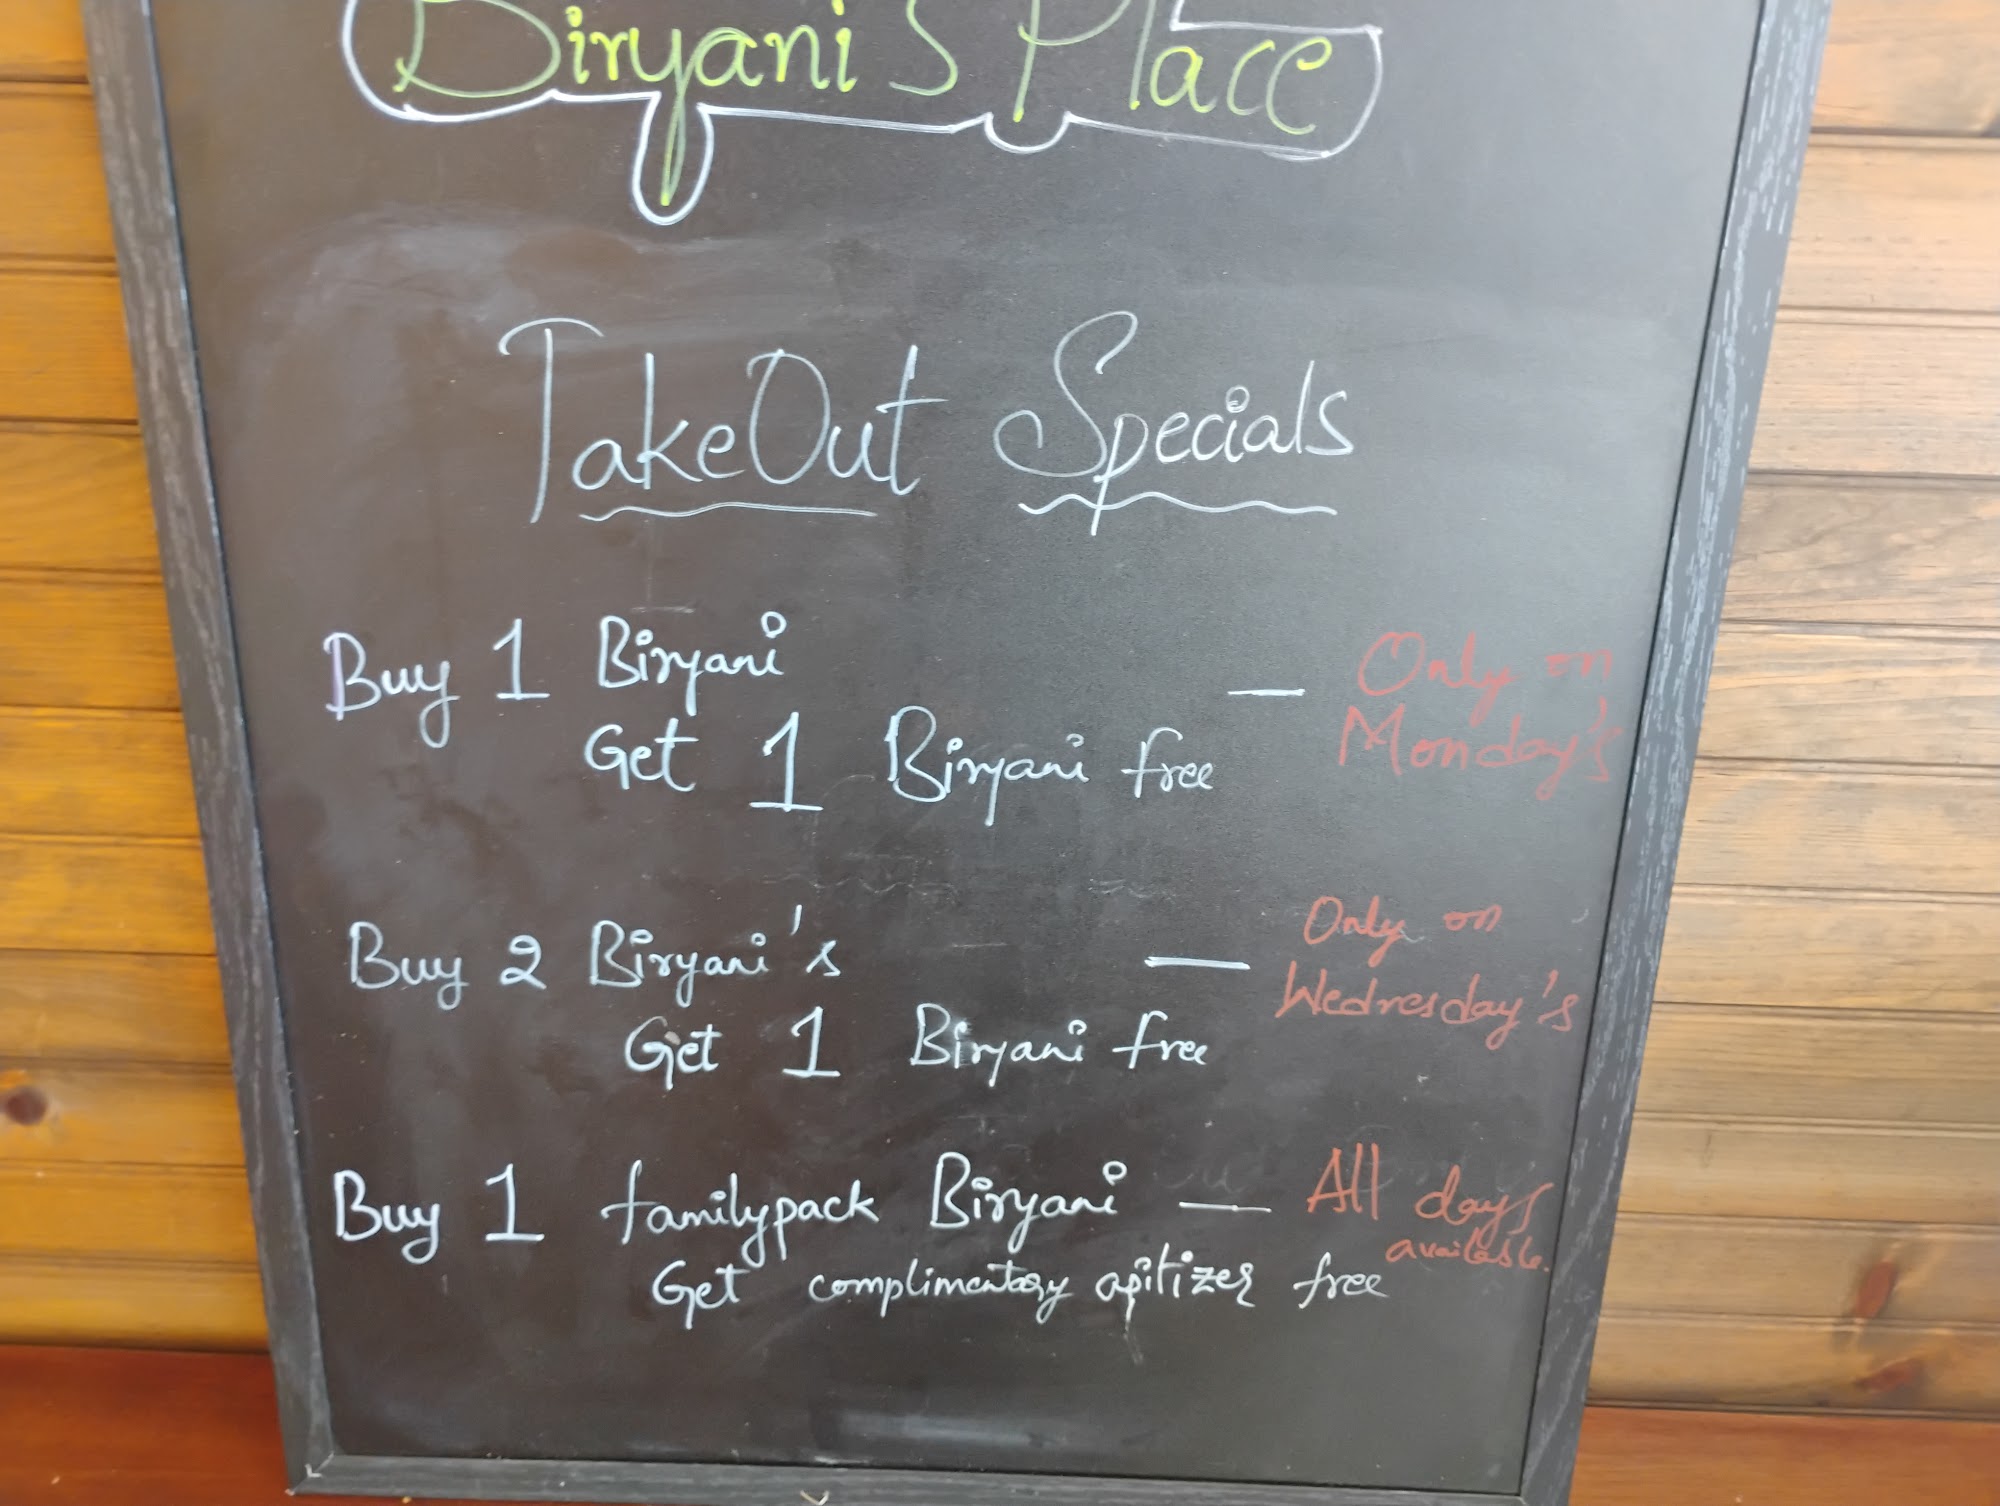 Biryani's Place
TakeOut Specials
Buy 1 Biryani
Get 1 Biryani free
— Only on
Monday's
Buy 2 Biryani's
Get 1 Biryani free
— Only on
Wednesday's
Buy 1 familypack Biryani — All days
available.
Get complimentary apitizer free